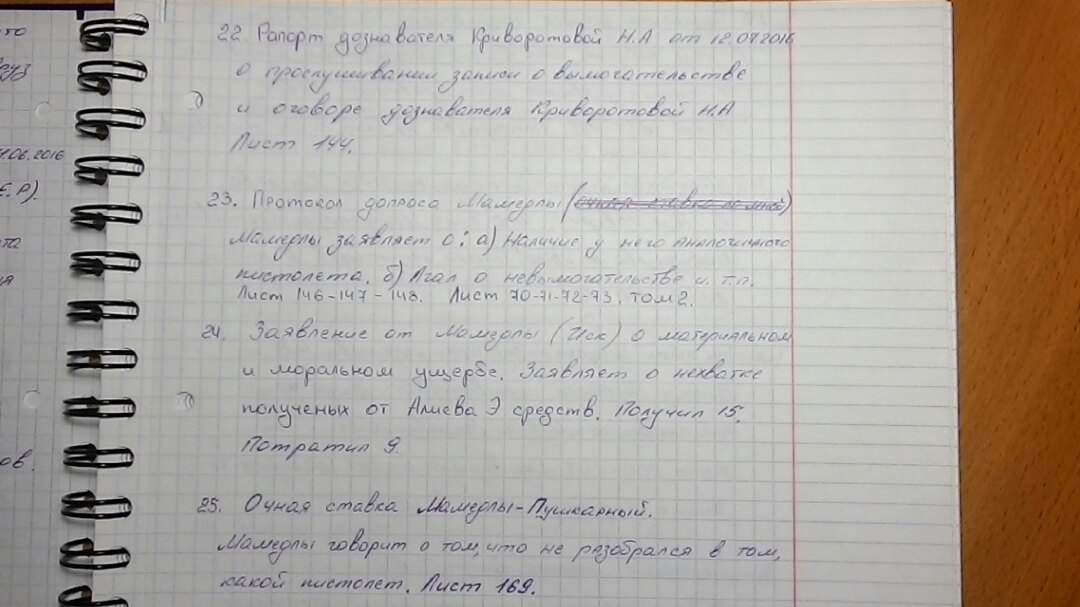 то
руз
1.06.2016
Е.Р).
та
ов.
22. Рапорт дознавателя Криворотовой Н.А от 12.07.2016
о прослушивании записи о вымогательстве
и оговоре дознавателя Криворотовой Н.А
Лист 144.
23. Протокол допроса Мамедлы (очная ставка со мной)
Мамедлы заявляет о: а) Наличие у него аналогичного
пистолета. б) Лгал о невымогательстве и. т.п.
Лист 146-147-148. Лист 70-71-72-73. том 2.
24. Заявление от Мамедлы (Иск) о материальном
и моральном ущербе. Заявляет о нехватке
полученых от Алиева Э средств. Получил 15;
Потратил 9.
25. Очная ставка Мамедлы-Пушкарный.
Мамедлы говорит о том, что не разобрался в том,
какой пистолет. Лист 169.